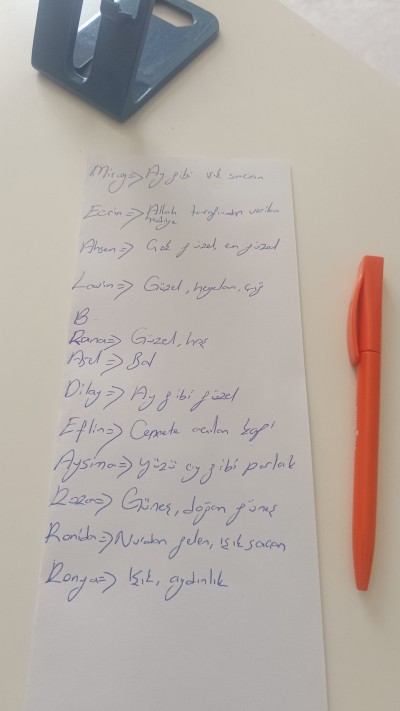 Miray => Ay gibi ışık saçan
Ecrin => Allah tarafından verilen hediye
Ahsen => Çok güzel, en güzel
Lavin => Güzel, heyelan, çığ
B
Rana => Güzel, hoş
Asel => Bal
Dilay => Ay gibi güzel
Eflin => Cennete açılan kapı
Aysima => yüzü ay gibi parlak
Roza => Güneş, doğan güneş
Ronida => Nurdan gelen, ışık saçan
Ronya => Işık, aydınlık